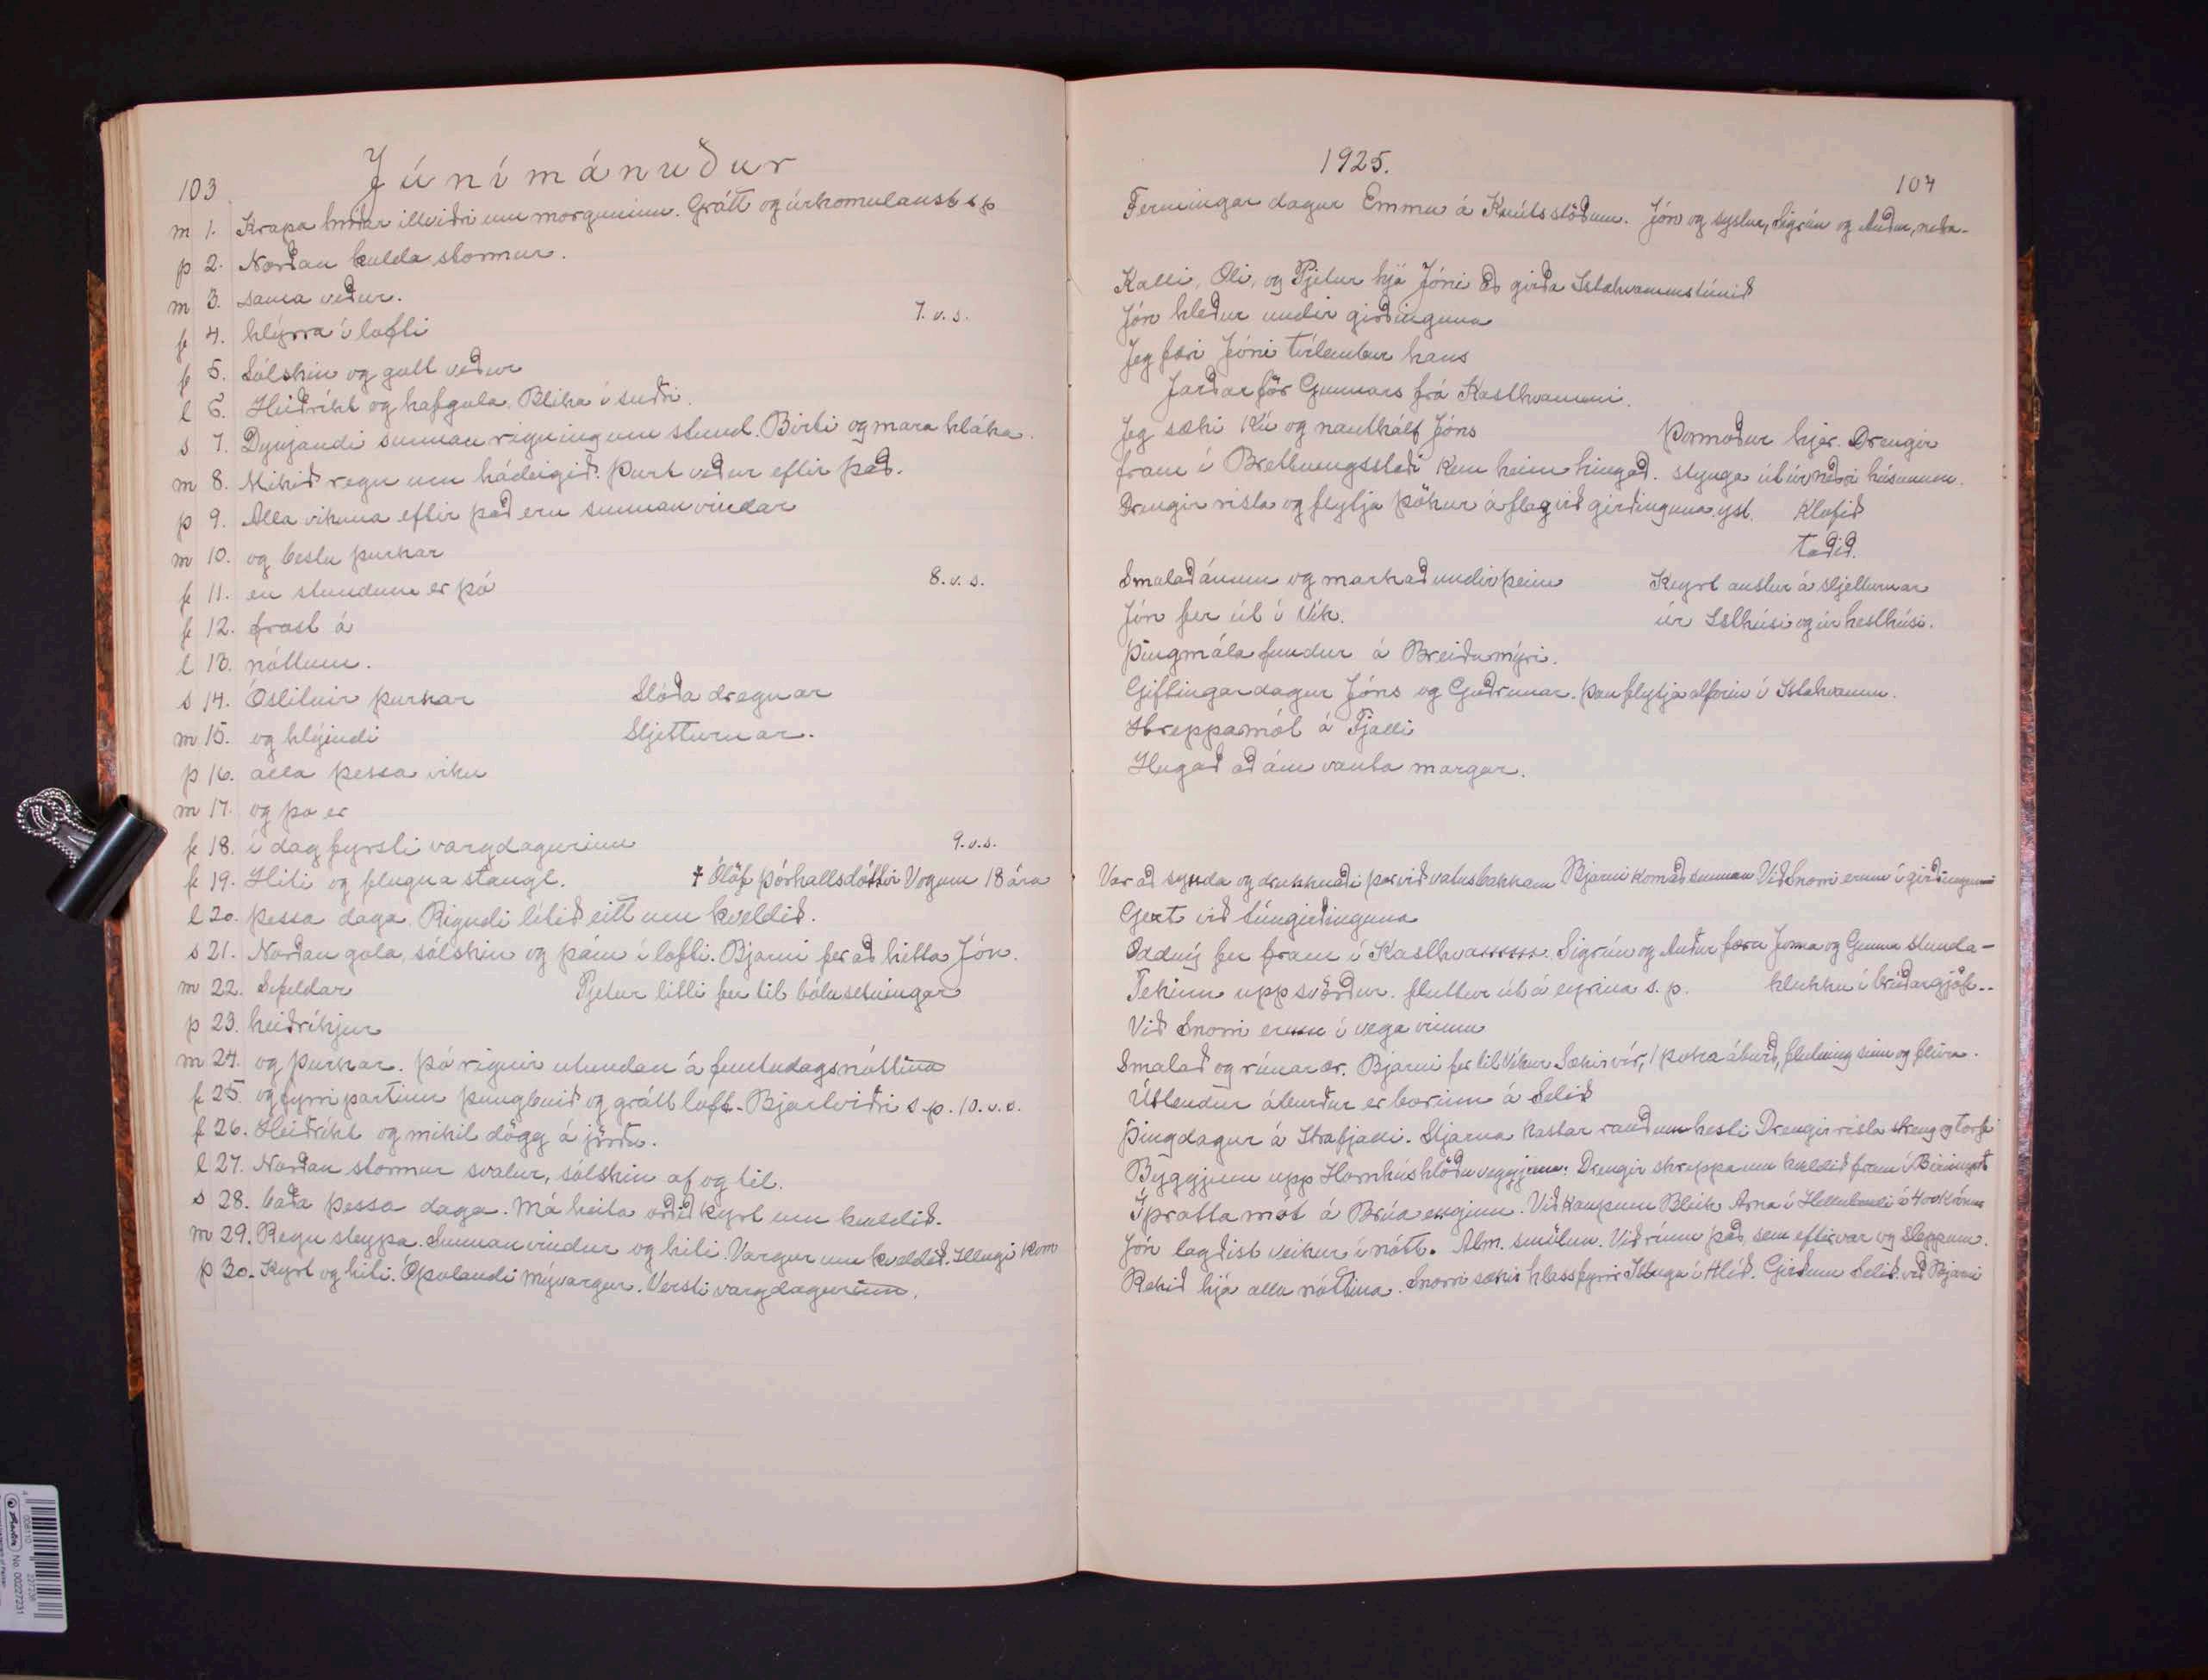 103
Júnímánuður
m 1. Krapa hríðar illviðri um morguninn. Grátt og úrkomulaust s p
þ 2. Norðan kulda stormur.
m 3. sama veður.
f 4. hlýrra í lofti 7. v. s.
f 5. Sólskin og gott veður
l 6. Heiðríkt og hafgola. Blika í suðri.
s 7. Dynjandi sunnan rigning um stund. Birti og mara hláka.
m 8. Mikið regn um hádeigið. Þurt veður eftir það.
þ 9. Alla vikuna eftir það eru sunnan vindar
m 10. og bestu þurkar
f 11. en stundum er þó 8. v. s.
f 12. frost á
l 13. nóttum.
s 14. Óslitnir þurkar Slóða dregnar
m 15. og hlýindi Sljetturnar.
þ 16. alla þessa viku
m 17. og þa er
f 18. í dag fyrsti vargdagurinn 9. v. s.
f 19. Hiti og flugna stangl. † Ólöf Þórhallsdóttir Vogum 18 ára
l 20. þessa daga. Rigndi lítið eitt um kveldið.
s 21. Norðan gola, sólskin og þám í lofti. Bjarni fer að hitta Jón.
m 22. Sífeldar Pjetur litli fer til bólusetningar
þ 23. heiðríkjur
m 24. og þurkar. þó rignir utundan á fimtudagsnóttina
f 25. og fyrri partinn þungbúið og grátt loft. Bjartviðri s. p. 10. v. s.
f 26. Heiðríkt og mikil dögg á jörðu.
l 27. Norðan stormur svalur, sólskin af og til.
s 28. baða þessa daga. Má heita orðið kyrt um kveldið.
m 29. Regn steypa. Sunnan vindur og hiti. Vargur um kveldið. Illugi kom
þ 30. Kyrt og hiti. Óþolandi mývargur. Versti vargdagurinn.
1925.
104
Fermingar dagur Emmu á Knútsstöðum. Jón og systur, Sigrún og Auður,
Kalli, Oli, og Pjetur hjá Jóni að girða Ístahvammstúnið
Jón hleður undir girðinguna
Jeg færi Jóni tvílembur hans
Jarðarför Gunnars frá Kasthvammi.
Jeg sæki Kú og nauthálf Jóns Þormóður hjer. Drengir
fram í Brettingsstaði kem heim hingað. stynga út úr neðri húsunum.
Drengir rista og flytja þökur á flag við girðinguna yst. Klofið
taðið.
Smalað ánum og markað undir þeim Keyrt austur á Sljetturnar
Jón fer út í Vík. úr Ísthúsi og úr hesthúsi.
Þingmála fundur á Breiðumýri.
Giftingardagur Jóns og Guðrúnar. Þau flytja alfarin í Ístahvamm.
Hreppamót á Fjalli
Hugað að ám vanta margar.
Var að synda og drukknaði þar við vatnsbakkann Bjarni kom að sunnan Við Snorri erum í girðingunni
Gert við túngirðinguna
Oddný fer fram í Kasthvamm. Sigrún og Auður færa Jóna og Gunnu Stunda-
Tekinn upp svörður. fluttur út á eyrina s. p. klukku í brúðargjöf..
Við Snorri erum í vega vinnu
Smalað og rúnar ær. Bjarni fer til Víkur Sækir vír, 1 poka áburð, flutning sinn og fleira.
Útlendur áburður er borinn á Selið
Þingdagur á Strafjalli. Stjarna kastar rauðum hesti Drengir rista streng og torf
Byggjum upp Hornhúshlöðu veggjinn. Drengir skreppa um kveldið fram í
Íþrotta mót á Brúa engjum. Við kaupum Bleik Arna í á 400 Krónur
Jón lagðist veikur í nótt. Alm. smölun. Við rúum það, sem eftir var og sleppum.
Rekið hjá alla nóttina. Snorri sækir hlass fyrir Illuga í Hlíð. Girðum Selið við Bjarni